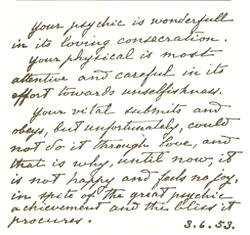 Your psychic is wonderfull
in its loving consecration.
Your physical is most
attentive and careful in its
effort towards unselfishness.
Your vital submits and
obeys, but unfortunately, could
not do it through love, and
that is why, until now, it
is not happy and feels no joy,
in spite of the great psychic
achievement and the bliss it
procures.
3.6.53.